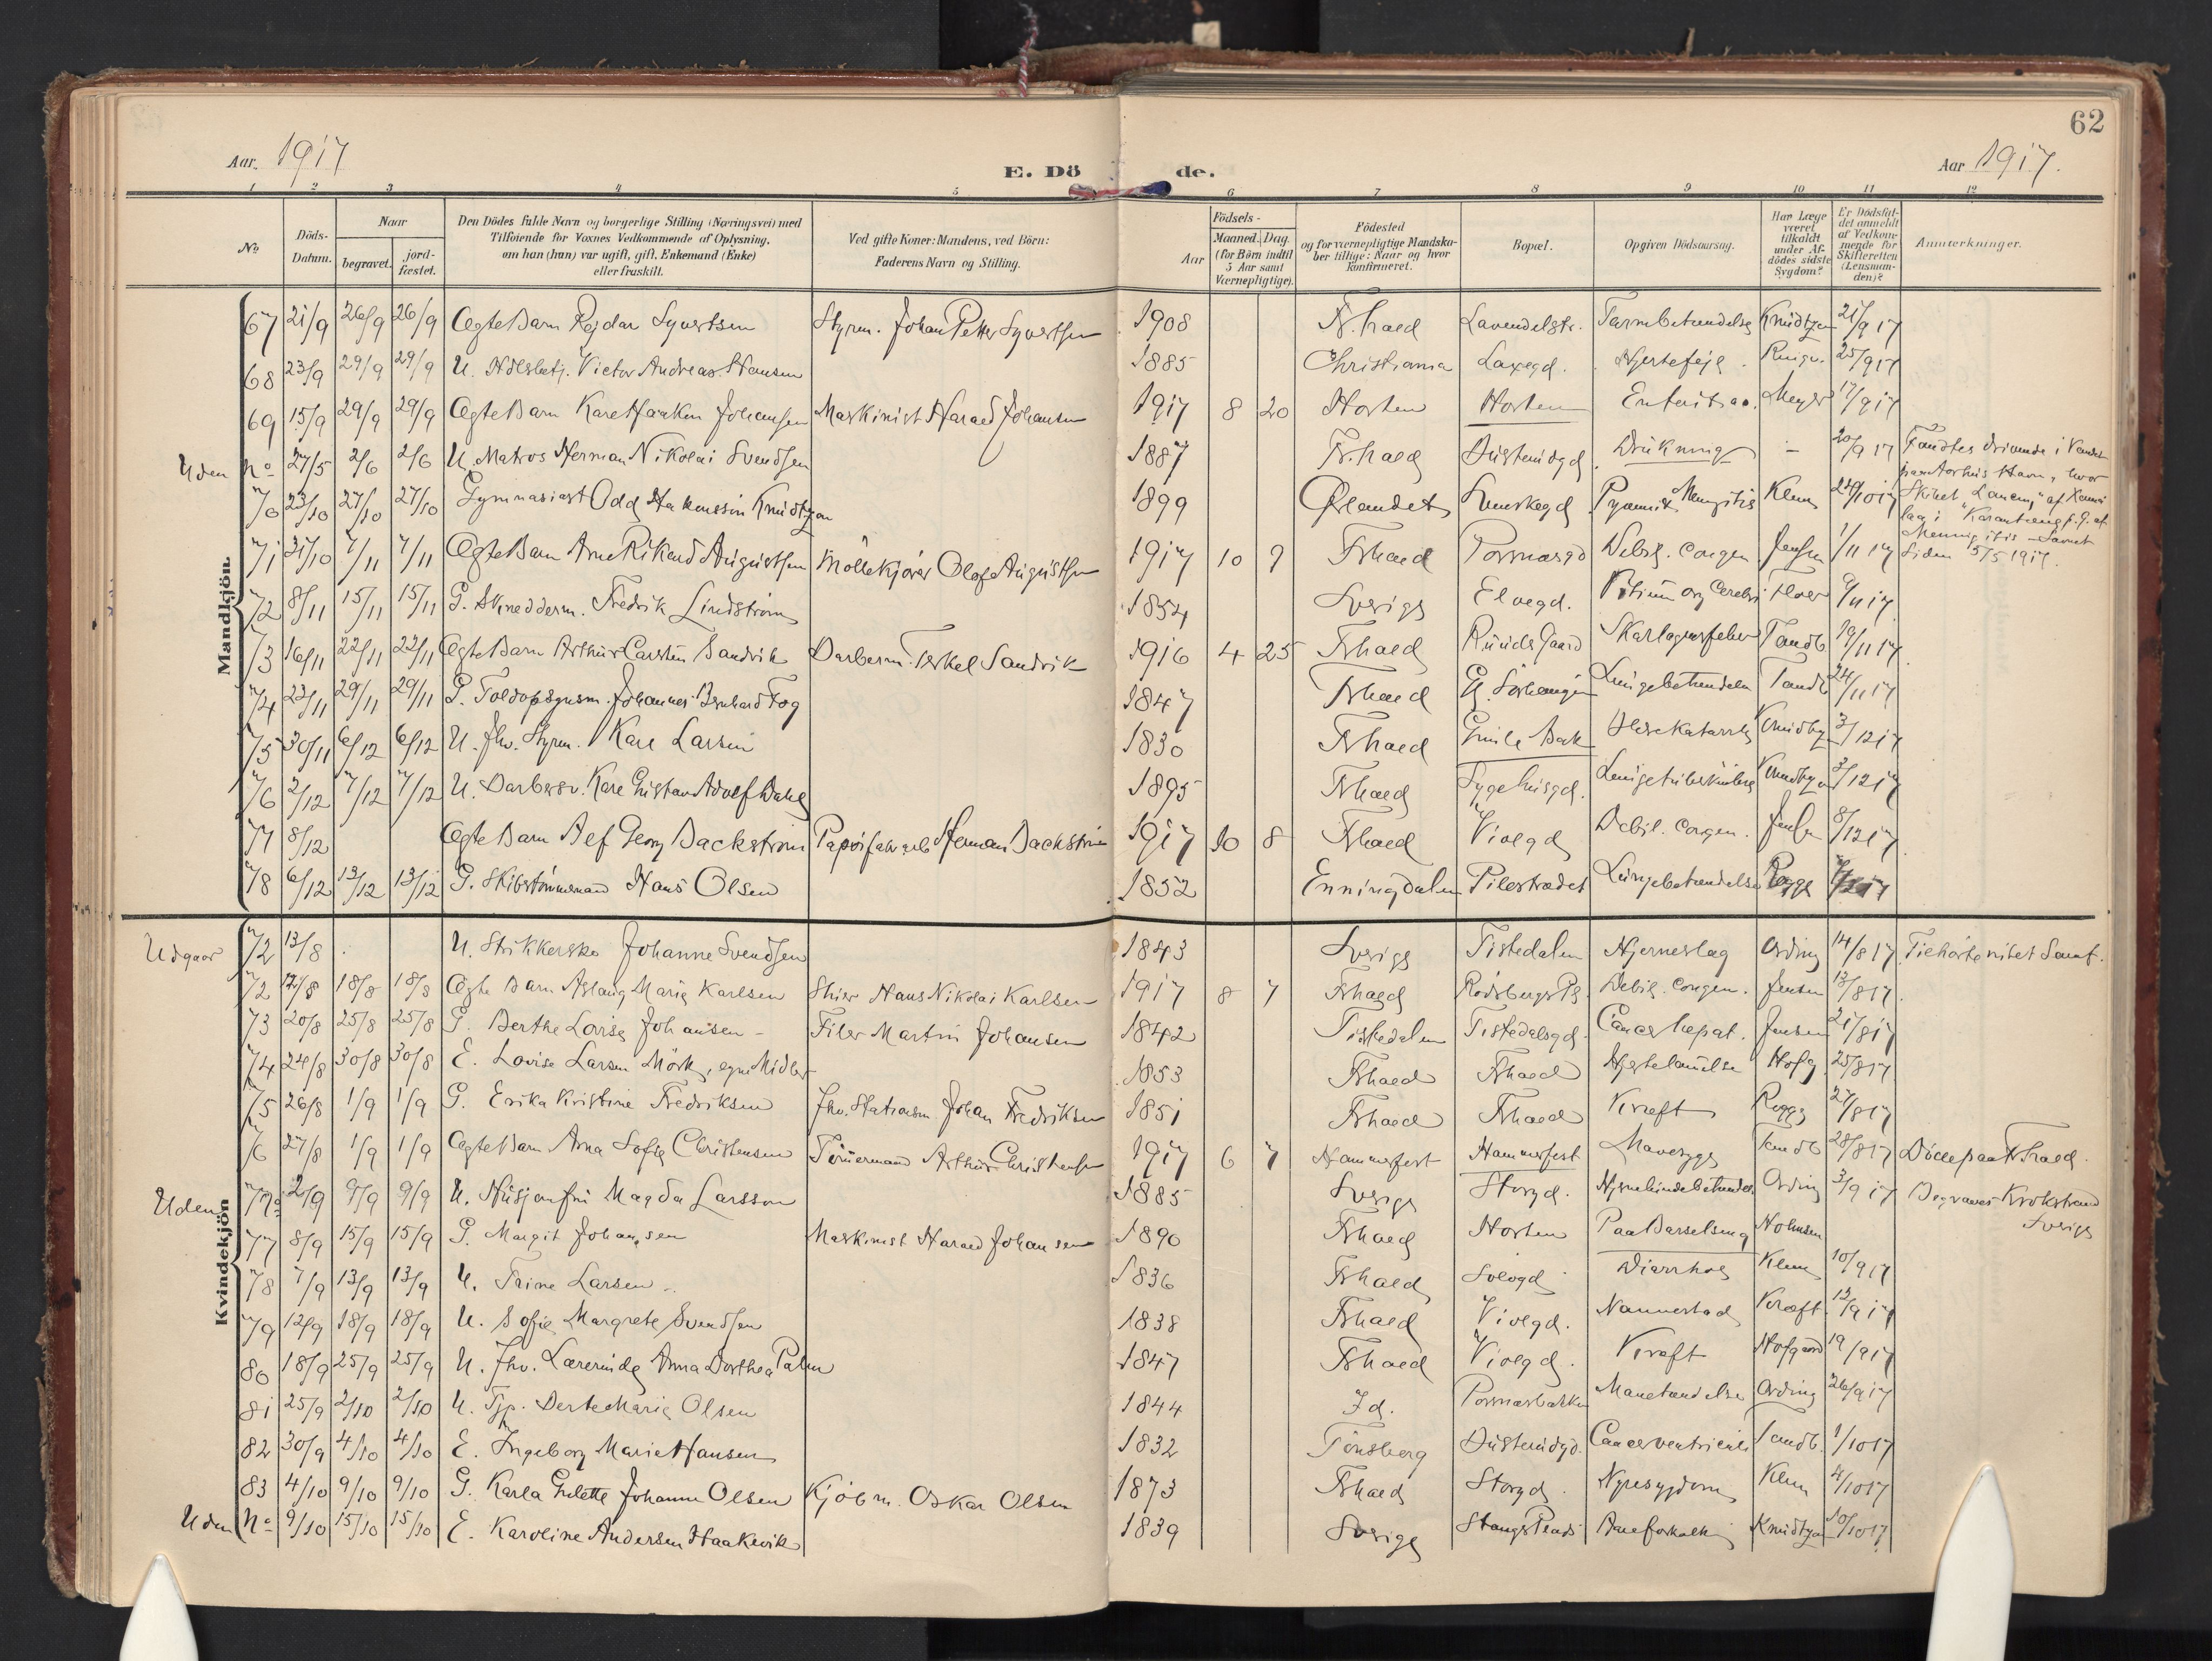 62
Aar. 1917
E. Dö de.
Aar 1917.
1 2 3 4 5 6 7 8 9 10 11 12
No
Döds-Datum.
Naar
begravet.
jord-fæstet.
Den Dödes fulde Navn og borgerlige Stilling (Næringsvei) med
Tilföiende for Voxnes Vedkommende af Oplysning,
om han (hun) var ugift, gift, Enkemand (Enke)
eller fraskilt.
Ved gifte Koner: Mandens, ved Börn:
Faderens Navn og Stilling.
Födsels-
Aar
Maaned. Dag.
(for Börn indtil
5 Aar samt
Værnepligtige).
Födested
og for værnepligtige Mandska-
ber tillige: Naar og hvor
konfirmeret.
Bopæl.
Opgiven Dödsaarsag.
Har Læge
været
tilkaldt
under Af-
dödes sidste
Sygdom?
Er Dödsfal-
det anmeldt
af Vedkom-
mende for
Skifteretten
(Lensman-
den)?
Anmerkninger.
Mandkjön.
67 21/9 26/9 26/9 Ægte Barn Rejdar Syvertsen Styrm. Johan Petter Syvertsen 1908 Fr.hald Lavendelstr. Tarmbetændelse Knudtzon 21/9 17
68 23/9 29/9 29/9 U. Hdlsbetj. Victor Andreas Hansen 1885 Christiania Laxegd. Hjertefejl 25/9 17
69 15/9 29/9 29/9 Ægte Barn Kare Haakon Johansen Maskinist Harald Johansen 1917 8 20 Horten Horten Meyer 17/9 17
Uden No 27/5 2/6 2/6 U. Matros Herman Nikolai Svendsen 1887 Fr.hald Drukning - 20/9 17 Fandtes drivende i Vandet
paa Aarhus Havn, hvor
Skibet
lag i Karantæne p. G. af
Meningitis - Savnet
siden 15/5 1917.
70 23/10 27/10 27/10 Gymnasiast Odd Knudtzon 1899 Ørlandet Meningitis Klem 24/10 17
71 31/10 7/11 7/11 Ægte Barn Arne Rikard Augustsen Möllekjörer Olof Augustsen 1917 10 9 Frhald Debil. congen Jensen 1/11 17
72 8/11 15/11 15/11 G. Skrædderm. Fredrik Lindström 1854 Sverige Elvegd. Vitium org. cerebri 9/11 17
73 16/11 22/11 22/11 Ægte Barn Arthur Carsten Sandvik Barberm. Terkel Sandvik 1916 4 25 Frhald Ruuds Gaard Skarlagensfeber Tandb 19/11 17
74 23/11 29/11 29/11 G. Toldopsynsm. Johannes Bernhard Fog 1847 Frhald Lungebetændelse Tandb 24/11 17
75 30/11 6/12 6/12 U. fhv. Styrm. Karl Larsen 1830 Frhald Knudtzon 3/12 17
76 2/12 7/12 7/12 U. Barbersv. Karl Gustav Adolf Dahl 1895 Frhald Sygehusgd. Lungetuberkulose Knudtzon 3/12 17
77 8/12 Ægte Barn Alf Georg Backström Papirfabr.arb Herman Backström 1917 10 8 Frhald Violgd Debil. congen. Jensen 8/12 17
78 6/12 13/12 13/12 G. Skibstömmermand Hans Olsen 1852 Enningdalen Pilestrædet Lungebetændelse Rogge
Kvindekjön
Udgaar 72 13/8 U. Strikkerske Johanne Svendsen 1843 Sverige Tistedalen Hjerneslag Ording 14/8 17 Tilhörte Samf.
72 12/8 18/8 18/8 Ægte Barn Aslaug Marie Karlsen Hans Nikolai Karlsen 1917 8 7 Frhald Rödsbergs Pl. Debil. congen. Jensen 13/8 17
73 20/8 25/8 25/8 G. Berthe Lovise Johansen - Filer Martin Johansen 1842 Tistedalen Tistedalsgd. Cancer hepat. Jensen 21/8 17
74 24/8 30/8 30/8 E. Lovise Larsen Mörk, 1853 Frhald Frhald Hjertelammelse Hofg. 25/8 17
75 26/8 1/9 1/9 G. Erika Kristine Fredriksen fhv. Stationsm Johan Fredriksen 1851 Frhald Frhald Kræft Rogge 27/8 17
76 27/8 1/9 1/9 Ægte Barn Anna Sofie Christensen Tömmermand Arthur Christensen 1917 6 7 Hammerfest Hammerfest Mavesyge Tandb 28/8 17 Döde paa Fr.hald.
Uden No 2/9 9/9 9/9 U. Husjomfru Magda Larsson 1885 Sverige Storgd. Hjernehindebetændelse Ording 3/9 17 Begraves Krokstrand
Sverige
77 8/9 15/9 15/9 G. Margit Johansen Maskinist Harald Johansen 1890 Frhald Horten Paa Barselseng Holmsen
78 7/9 13/9 13/9 U. Trine Larsen 1836 Frhald Solvgd Diarrhoe Klem 10/9 17
79 12/9 18/9 18/9 U. Sofie Margrete Svendsen 1838 Frhald Violgd. Nannestad Kræft 12/9 17
80 18/9 25/9 25/9 U. fhv. Lærerinde Anna Dorthea Palm 1847 Frhald Violgd. Kræft Hofgaard 19/9 17
81 25/9 2/10 2/10 U. Tjp. Berte Marie Olsen 1844 Id. Ording 26/9 17
82 30/9 4/10 4/10 E. Ingeborg Marie Hansen 1832 Tönsberg Cancer ventriculi Tandb. 1/10 17
83 4/10 9/10 9/10 G. Karla Johanne Olsen Kjöbm. Oskar Olsen 1873 Frhald Storgd. Nyresygdom Klem 4/10 17
Uden No 9/10 15/10 15/10 E. Karoline Andersen Haakevik 1839 Sverige Stangs Plads Aareforkalkn. Knudtzon 10/10 17